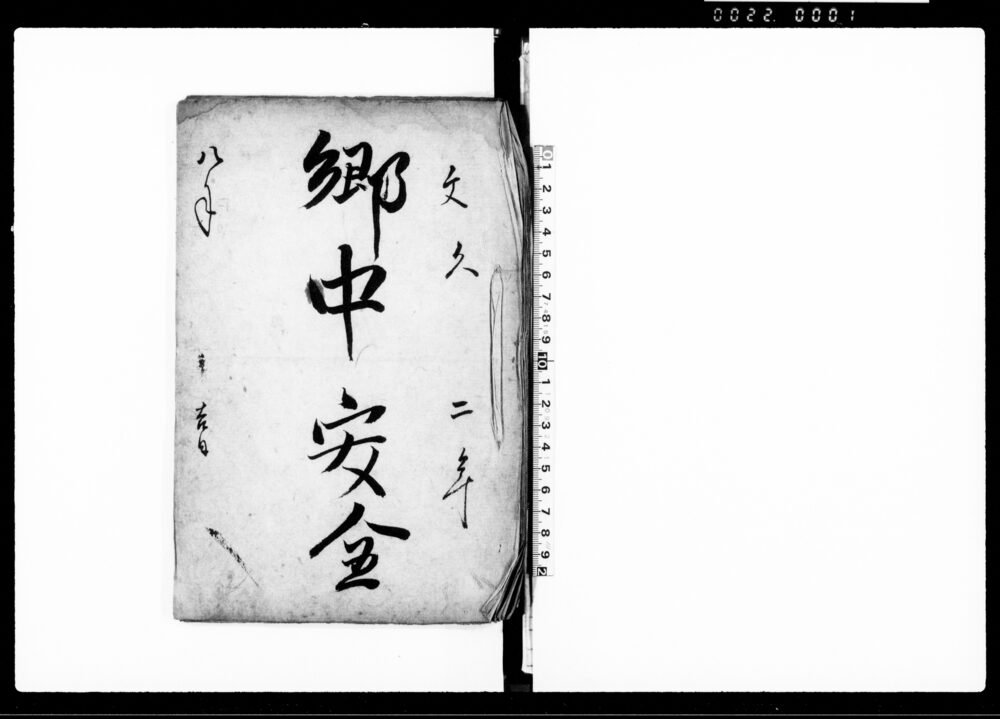 0022 0001
文久二年
郷中安全
八月
吉日
0 1 2 3 4 5 6 7 8 9 10 1 2 3 4 5 6 7 8 9 2